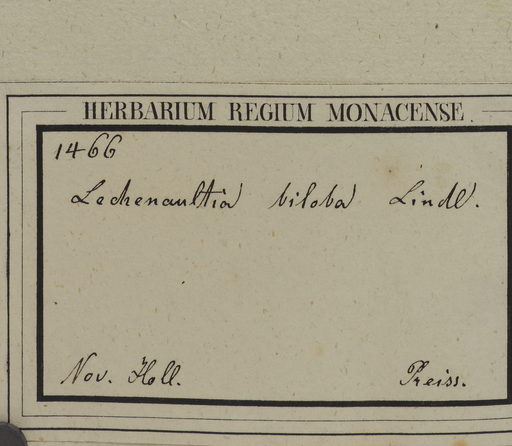 HERBARIUM REGIUM MONACENSE.
1466
Lechenaultia biloba Lindl.
Nov. Holl. Preiss.